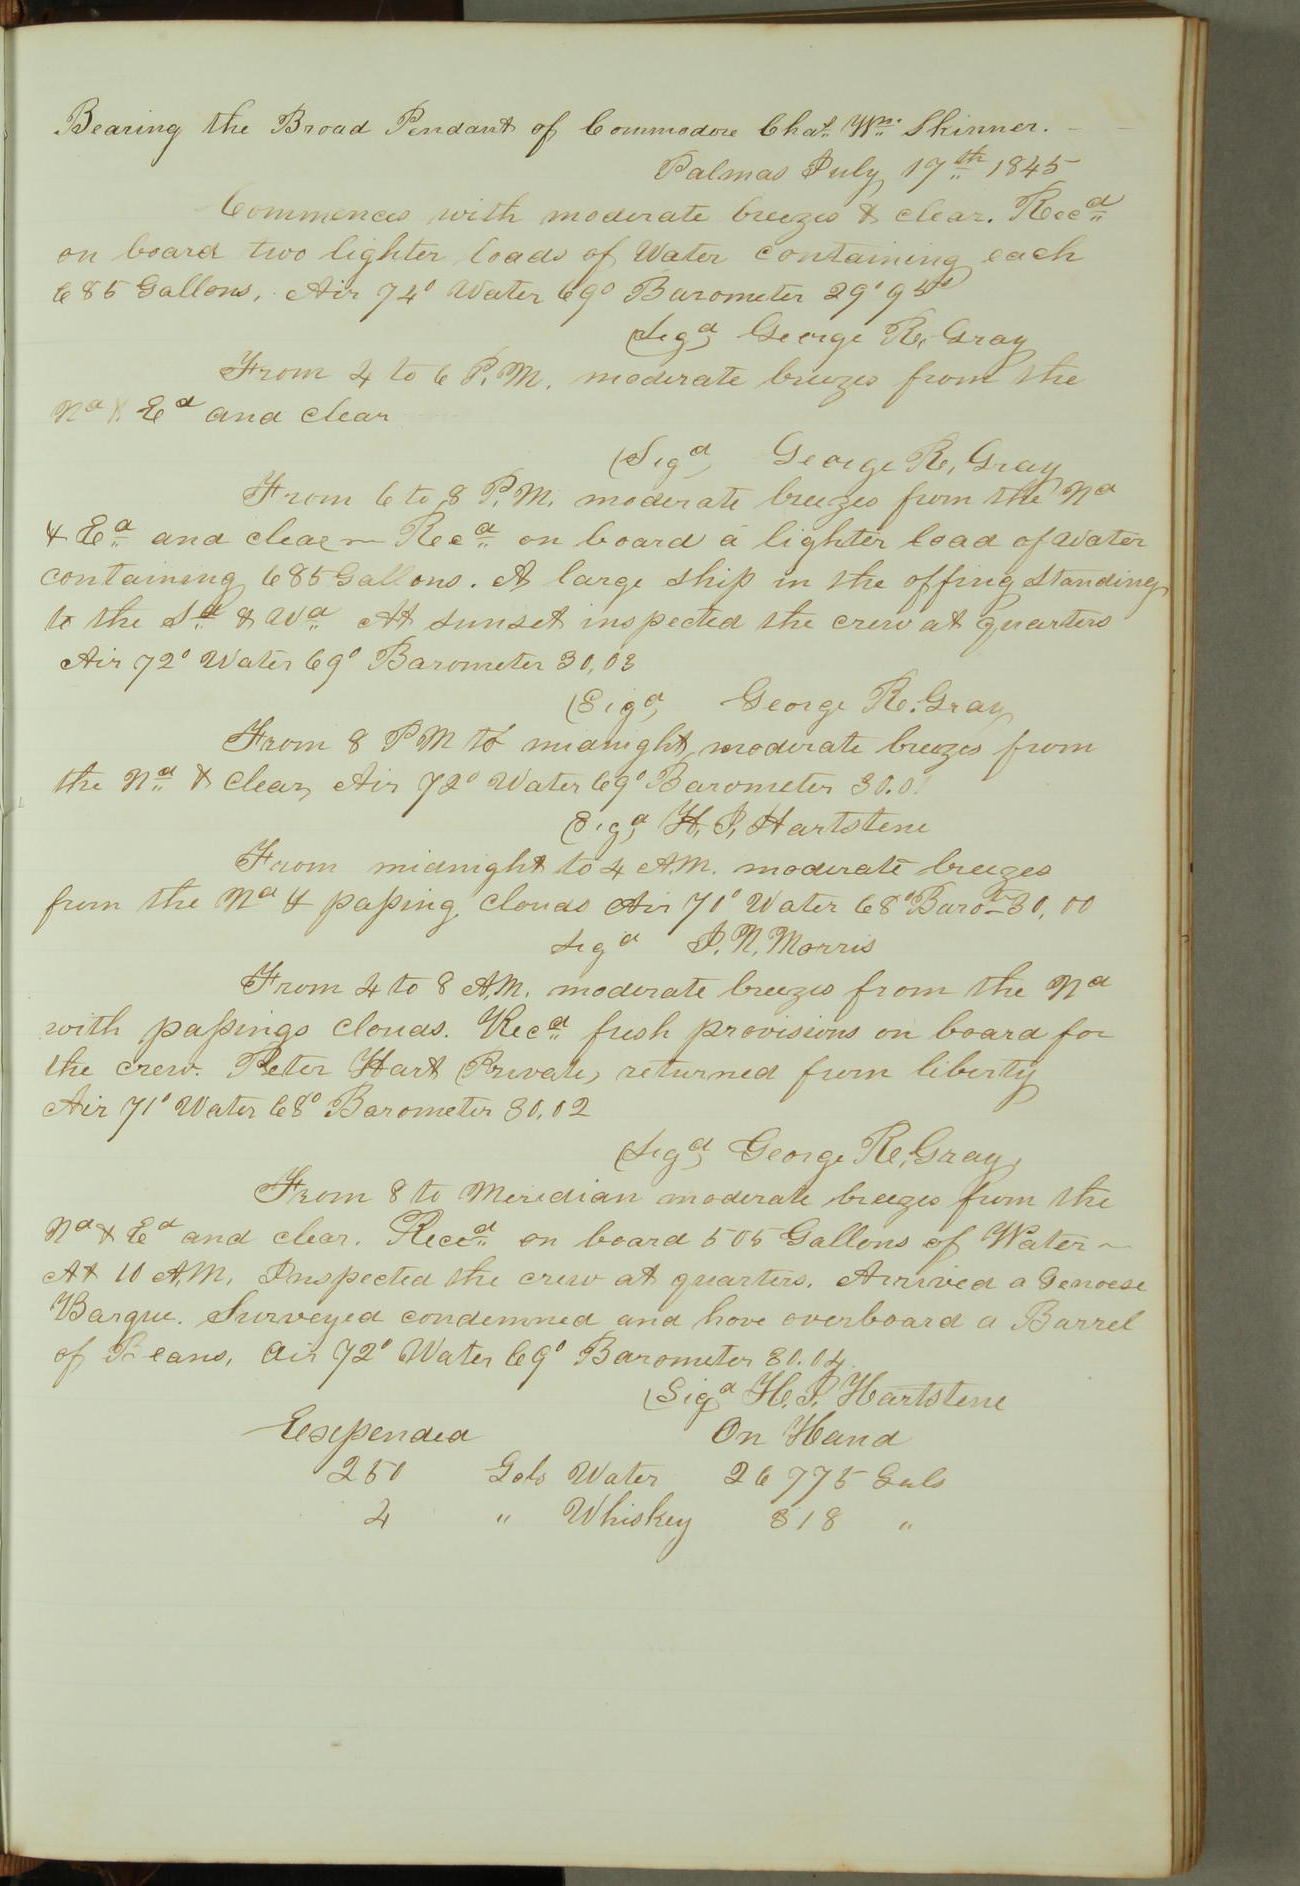 Bearing the Broad Pendant of Commodore Chas. Wm. Skinner.
Palmas July 17th 1845
Commences with moderate breezes & clear. Recd
on board two lighter loads of Water containing each
685 Gallons, Air 74° Water 69° Barometer 29°
(Sigd) George R. Gray
From 4 to 6 P.M. moderate breezes from the
Nd & Ed and clear
(Sigd) George R. Gray
From 6 to 8 P.M. moderate breezes from the Nd
& Ed and clear – Recd on board a lighter load of Water
containing 685 Gallons. A large ship in the offing standing
to the Sd & Wd At sunset inspected the crew at quarters
Air 72° Water 69° Barometer 30,03
(Sigd) George R. Gray
From 8 P M to midnight, moderate breezes from
the Nd & Clear, Air 72° Water 69° Barometer
(Sigd) H. J. Hartstene
From midnight to 4 A.M. moderate breezes
from the Nd & passing clouds Air 71° Water 68° Baro– 30,00
Sigd J. N. Morris
From 4 to 8 A.M. moderate breezes from the Nd
with passings clouds. Recd fresh provisions on board for
the crew. Peter Hart (Private) returned from liberty
Air 71° Water 68° Barometer 30.02
(Sigd) George R. Gray
From 8 to Meridian moderate breezes from the
Nd & Ed and clear. Recd on board 505 Gallons of Water –
At 10 A.M. Inspected the crew at quarters. Arrived a Genoese
Barque. Surveyed condemned and hove overboard a Barrel
of Beans, Air 72° Water 69° Barometer 30.04
(Sigd H. J. Hartstene
Expended On Hand
250 Gals Water 26775 Gals
4 " Whiskey 818 "